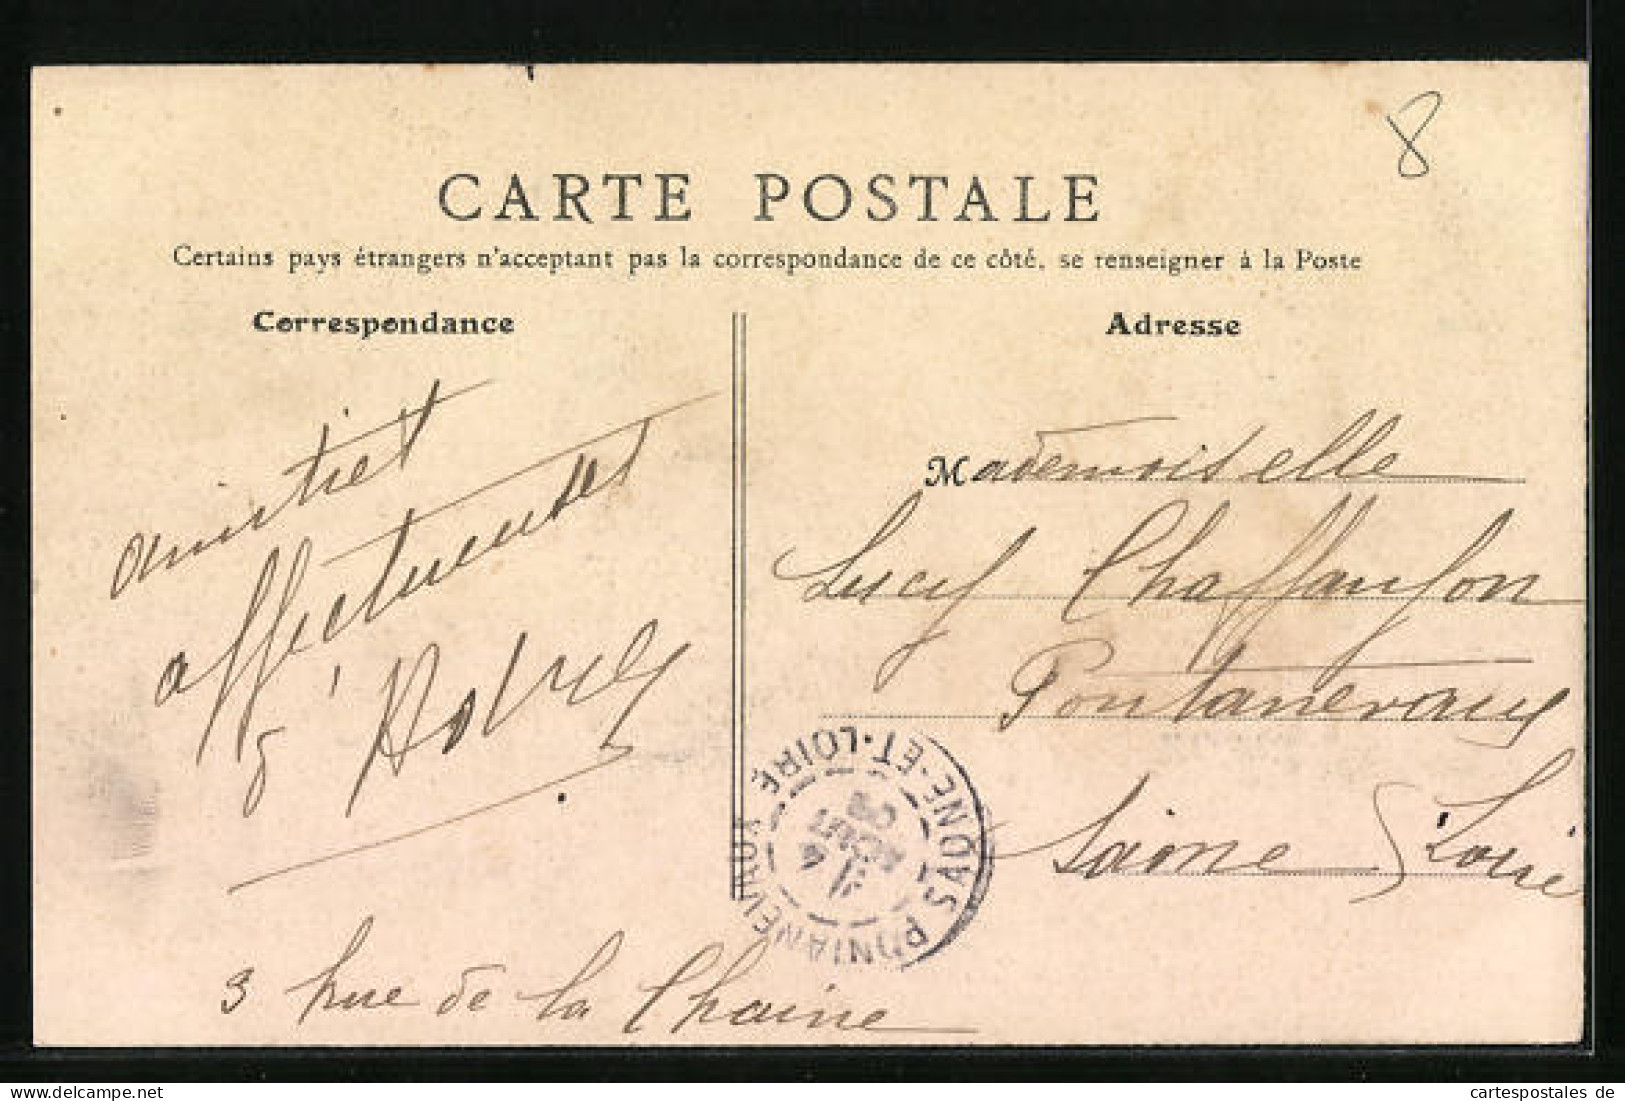 8
CARTE POSTALE
Certains pays étrangers n'acceptant pas la correspondance de ce côté, se renseigner à la Poste
Correspondance
amitiet
affectueuses
3 rue de la Chaine
Adresse
Mademoiselle
Lucy Chaffanjon
Pontanevaux
Saône & Loire
PONTANEVAUX SAONE-ET-LOIRE
cartespostales de
delcampe.net